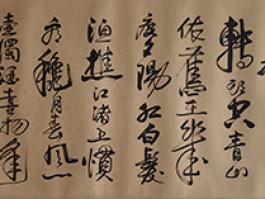 轉頭空青山
依舊在幾
度夕陽紅白髮
漁樵江渚上慣
看龝月春風
壺濁酒喜相逢